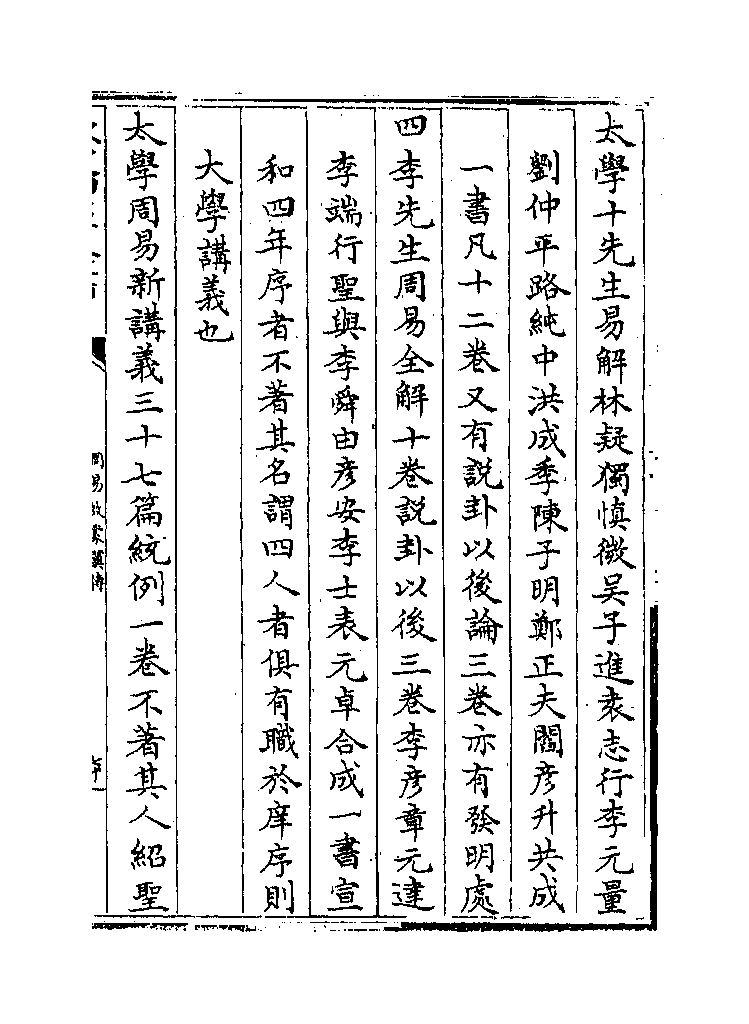 太學十先生易解林疑獨慎微吴子進袁志行李元量
劉仲平路純中洪成季陳子明鄭正夫閻彦升共成
一書凡十二卷又有説卦以後論三卷亦有發明處
四李先生周易全解十卷説卦以後三卷李彦章元達
李端行聖與李舜由彦安李士表元卓合成一書宣
和四年序者不著其名謂四人者俱有職於庠序則
大學講義也
太學周易新講義三十七篇統例一卷不著其人紹聖